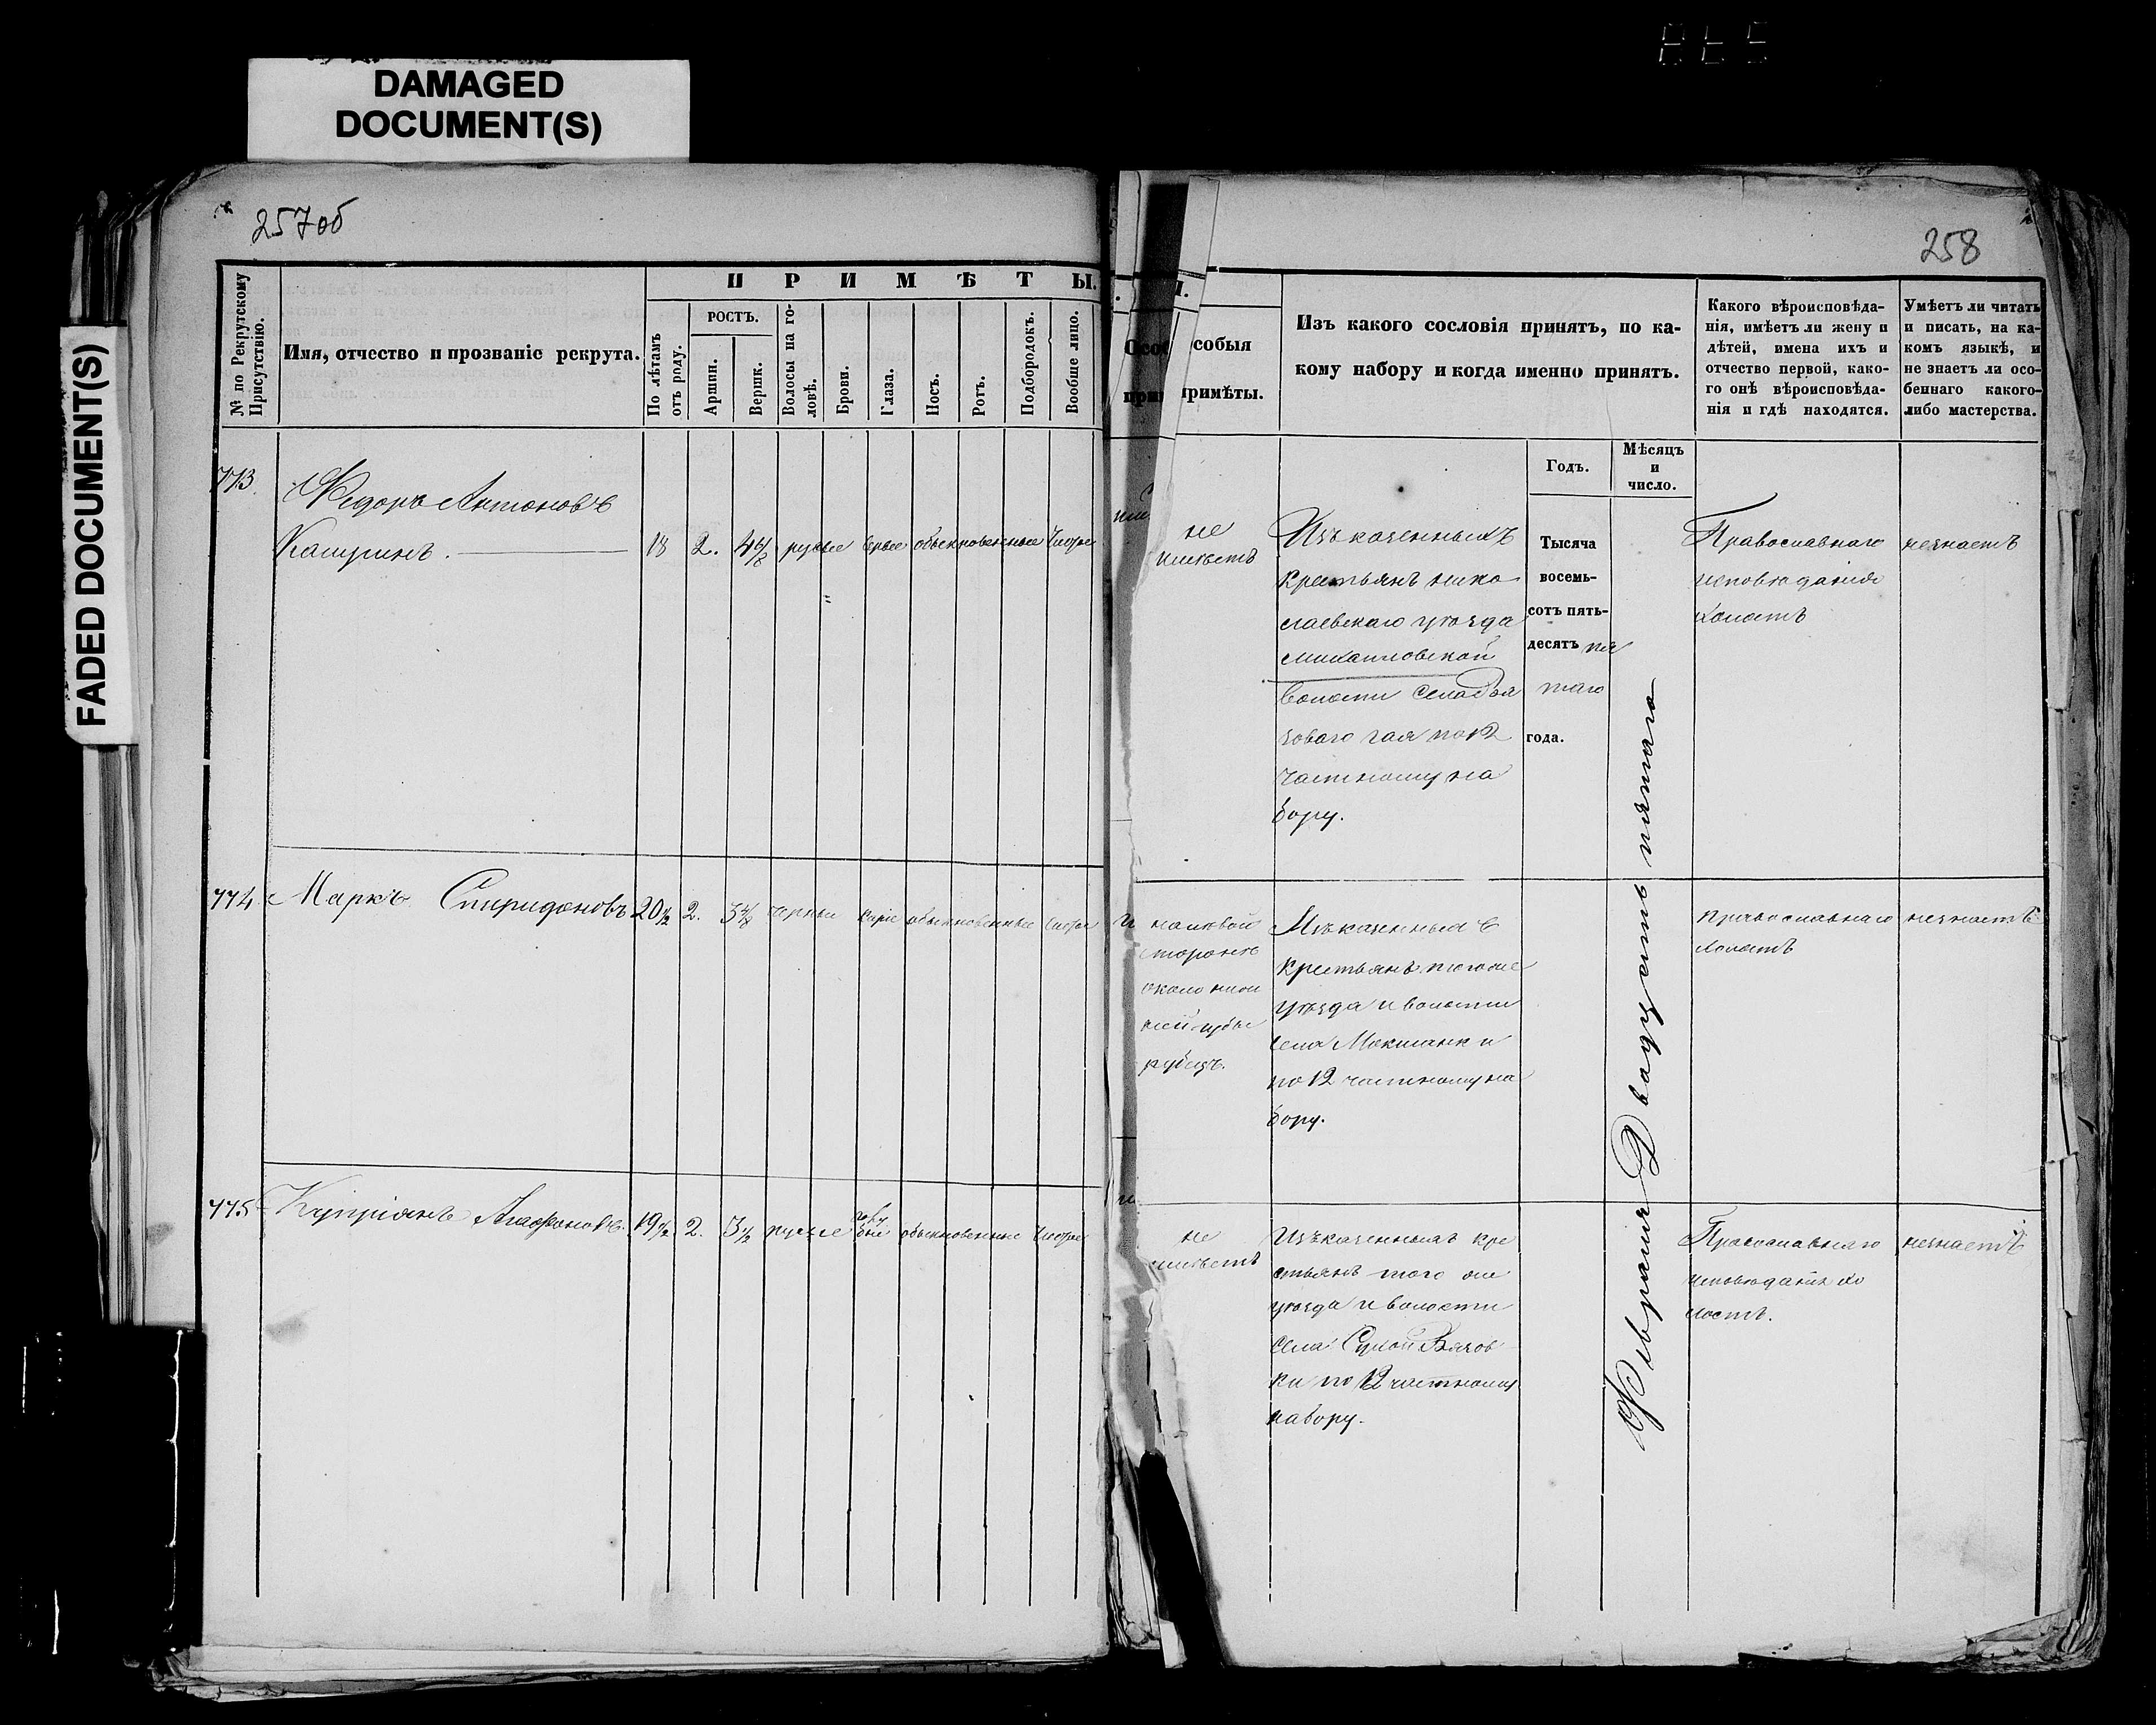 DAMAGED
DOCUMENT(S)
FADED DOCUMENT(S)
257об
258
№ по Рекрутскому
Присутствію.
Имя, отчество и прозваніе рекрута.
ПРИМѢТЫ.
По лѣтамъ
отъ роду.
РОСТЪ.
Аршин.
Вершк.
Волосы на го-
ловѣ.
Брови.
Глаза.
Носъ.
Ротъ.
Подбородокъ.
Вообще лицо.
собыя
примѣты.
Изъ какого сословія принятъ, по ка-
кому набору и когда именно принятъ.
Годъ.
Мѣсяцъ
и
число.
Какого вѣроисповѣда-
нія, имѣетъ ли жену и
дѣтей, имена ихъ и
отчество первой, како-
го онѣ вѣроисповѣда-
нія и гдѣ находятся.
Умѣетъ ли читать
и писать, на ка-
комъ языкѣ, и
не знаетъ ли осо-
беннаго какого-
либо мастерства.
773.
Федоръ Антоновъ
Кашуринъ.
18 2. 4 6/8 русые серые обыкновенные чистое
не
имѣетъ
Изъ казенныхъ
крестьянъ нико
лаевскаго уѣзда
михайловской
волости села
по 12
частному на
бору.
Тысяча
восемь-
сотъ пять-
десятъ пя
таго
года.
Православнаго
исповѣданія
холостъ
незнаетъ
774.
Маркъ Спиридоновъ
20 1/2 2. 3 4/8 черные каріе обыкновенные чистое
на лѣвой
сторонѣ
около ниж
ней губы
рубецъ.
Изъ казенныхъ
крестьянъ тогоже
уѣзда и волости
села Мокшанки
по 12 частному на
бору.
православнаго
холостъ
незнаетъ
775
Купріянъ Агафоновъ
19 1/2 2. 3 1/2 русые голу
бые обыкновенные чистое
не
имѣетъ
Изъ казенныхъ кре
стьянъ того же
уѣзда и волости
села Сухой Вязов
ки по 12 частному
набору.
Православнаго
исповѣданія хо
лостъ.
незнаетъ
Февраля Двадцать пятаго